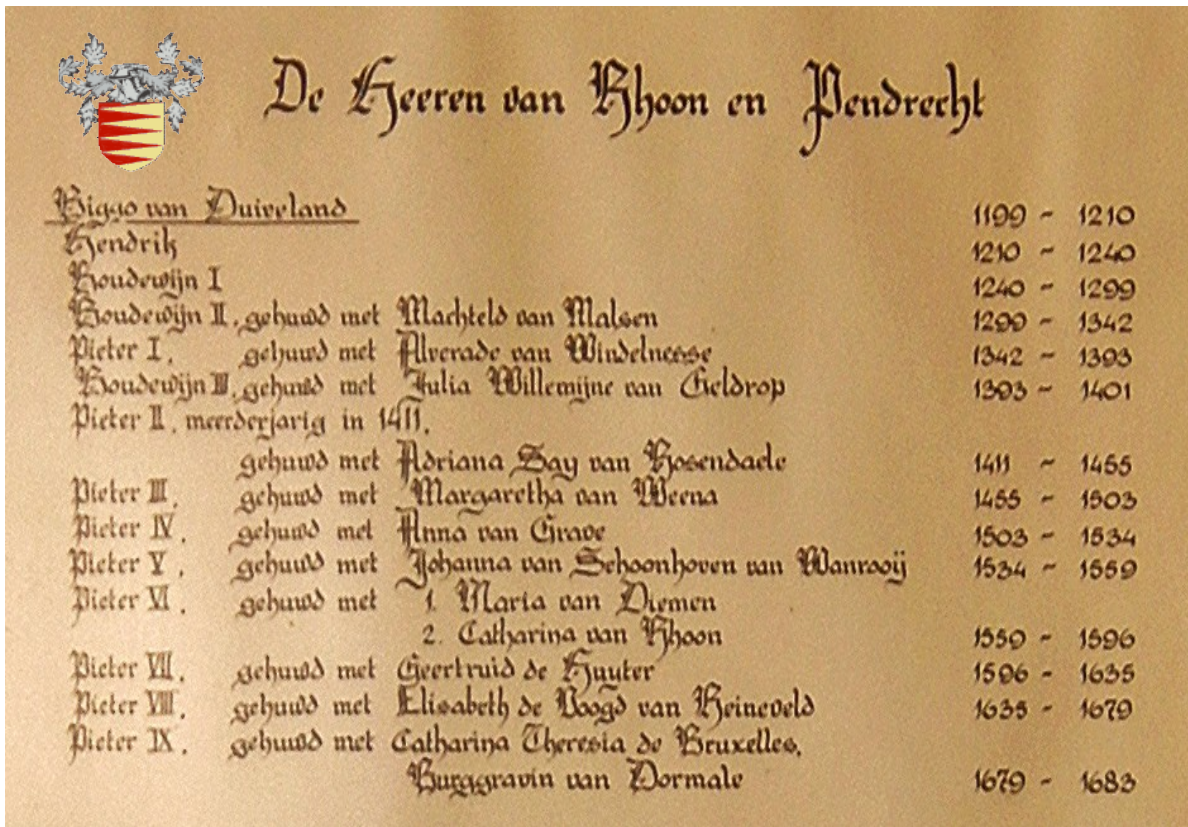 De Heeren van Rhoon en Pendrecht
Biggo van Duiveland 1199 - 1210
Hendrik 1210 - 1240
Boudewijn I 1240 - 1299
Boudewijn II, gehuwd met Machteld van Malsen 1299 - 1342
Pieter I, gehuwd met Alverade van Windelnesse 1342 - 1393
Boudewijn III, gehuwd met Julia Willemijne van Geldrop 1393 - 1401
Pieter II, meerderjarig in 1411,
gehuwd met Adriana Say van Rosendaele 1411 - 1455
Pieter III, gehuwd met Margaretha van Weena 1455 - 1503
Pieter IV, gehuwd met Anna van Grave 1503 - 1534
Pieter V, gehuwd met Johanna van Schoonhoven van Wanrooij 1534 - 1559
Pieter VI, gehuwd met 1. Maria van Diemen
2. Catharina van Rhoon 1559 - 1596
Pieter VII, gehuwd met Geertruid de Huuter 1596 - 1635
Pieter VIII, gehuwd met Elisabeth de Voogd van Reineveld 1635 - 1679
Pieter IX, gehuwd met Catharina Theresia de Bruxelles,
Burggravin van Dormale 1679 - 1683